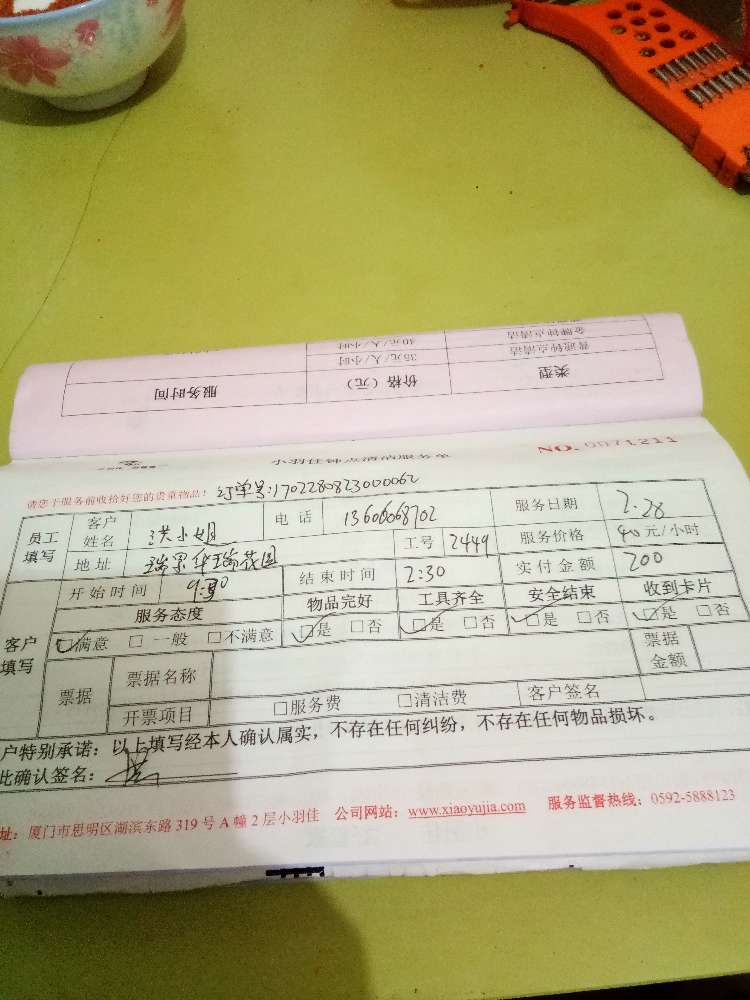 金牌钟点清洁 40元/人/小时
普通钟点清洁 35元/人/小时
类型 价格（元） 服务时间
小羽佳钟点清洁服务单 NO. 0071211
请您于服务前收拾好您的贵重物品！ 订单号:1702280823000062
员工填写 客户姓名 洪小姐 电话 13606068702 服务日期 2.28
地址 瑞景华瑞花园 工号 2449 服务价格 40元/小时
客户填写 开始时间 9:30 结束时间 2:30 实付金额 200
服务态度 物品完好 工具齐全 安全结束 收到卡片
☑满意 □一般 □不满意 ☑是 □否 ☑是 □否 ☑是 □否 ☑是 □否
票据 票据名称 票据金额
开票项目 □服务费 □清洁费 客户签名
户特别承诺：以上填写经本人确认属实，不存在任何纠纷，不存在任何物品损坏。
此确认签名：
址：厦门市思明区湖滨东路319号A幢2层小羽佳 公司网站：www.xiaoyujia.com 服务监督热线：0592-5888123